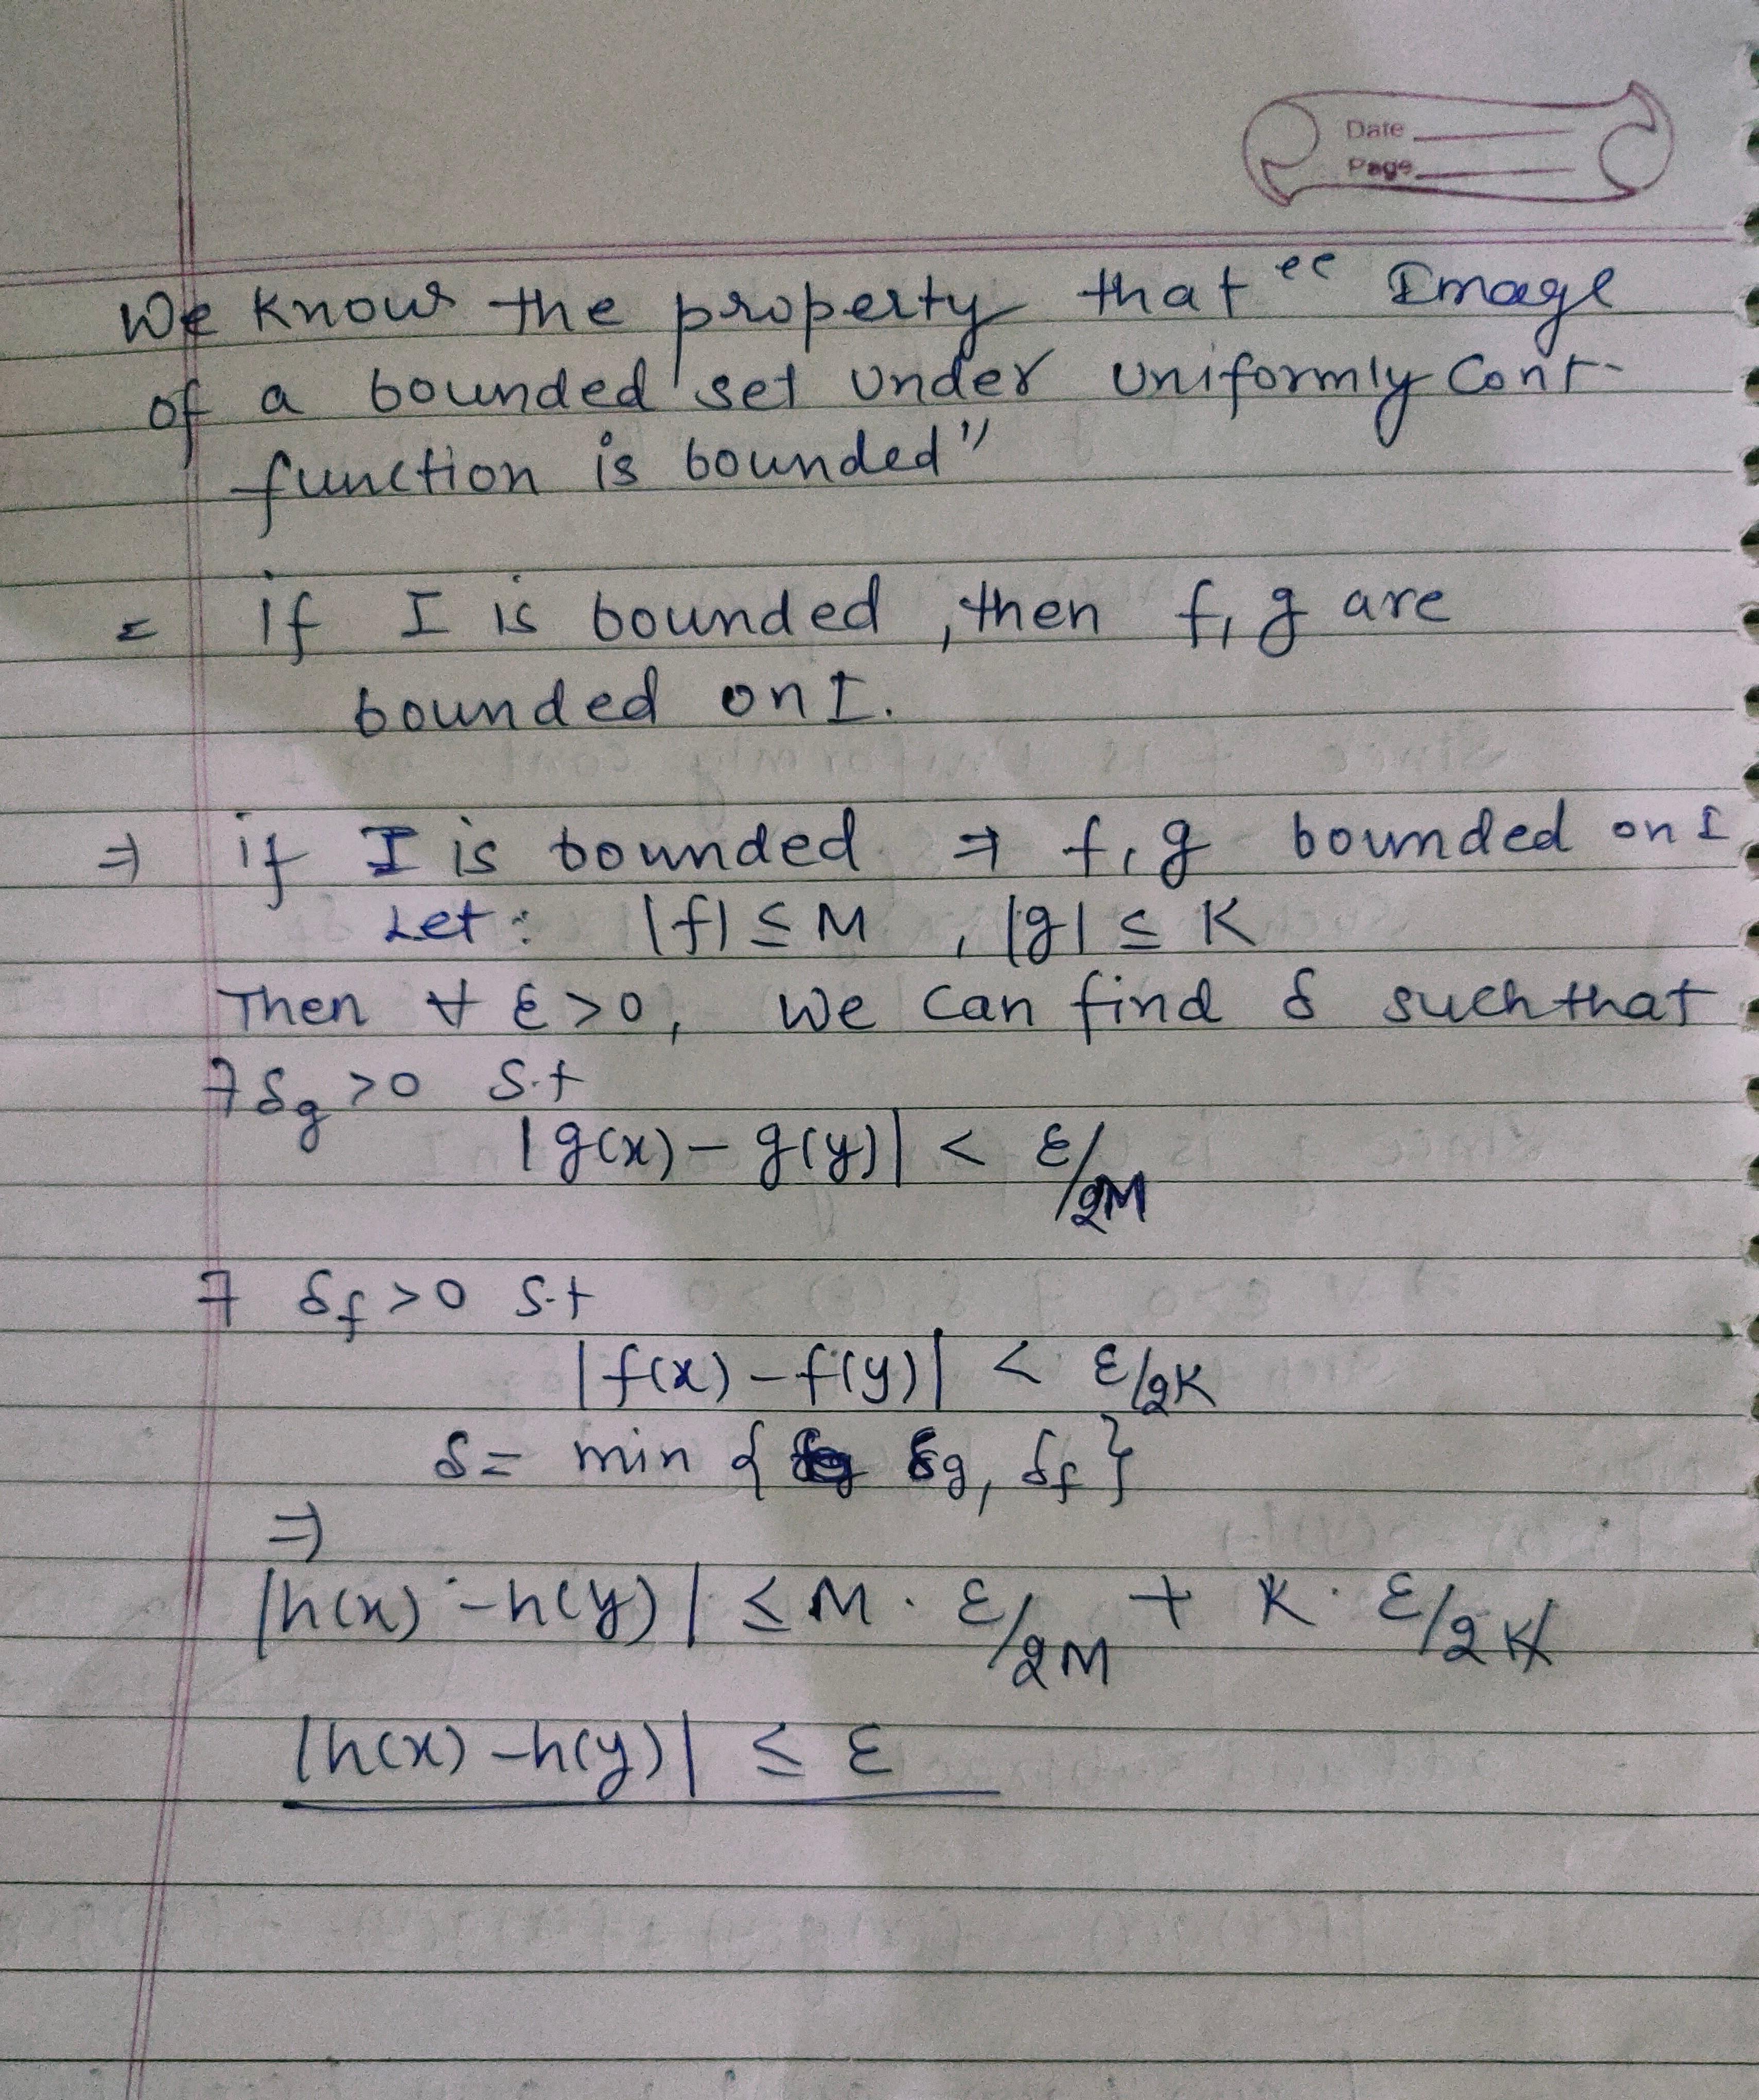 Date
Page
We know the property that “ Image
of a bounded set under uniformly cont-
function is bounded”
= if I is bounded , then f, g are
bounded on I.
⇒ if I is bounded ⇒ f, g bounded on I
Let : |f| ≤ M , |g| ≤ K
Then ∀ ε > 0, we can find δ such that
∃ δg > 0 s.t
|g(x) - g(y)| < ε/2M
∃ δf > 0 s.t
|f(x) - f(y)| < ε/2K
δ = min { δg, δf }
⇒
|h(x) - h(y)| ≤ M . ε/2M + K . ε/2K
|h(x) - h(y)| ≤ ε